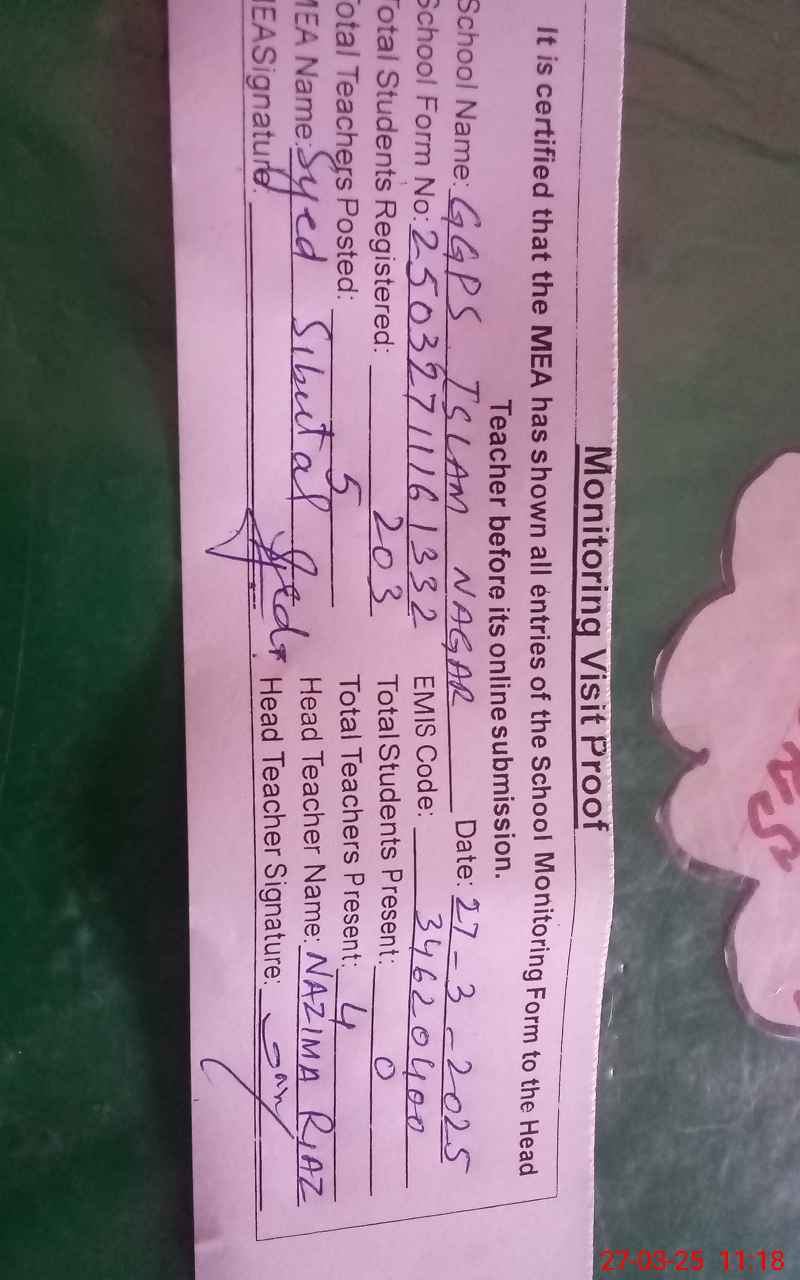 Monitoring Visit Proof
It is certified that the MEA has shown all entries of the School Monitoring Form to the Head
Teacher before its online submission.
School Name: GGPS ISLAM NAGAR Date: 27-3-2025
School Form No: 25032711161332 EMIS Code: 34620400
Total Students Registered: 203 Total Students Present: 0
Total Teachers Posted: 5 Total Teachers Present: 4
MEA Name: Syed Sibtal Head Teacher Name: NAZIMA RIAZ
MEASignature: Head Teacher Signature:
27-03-25 11:18